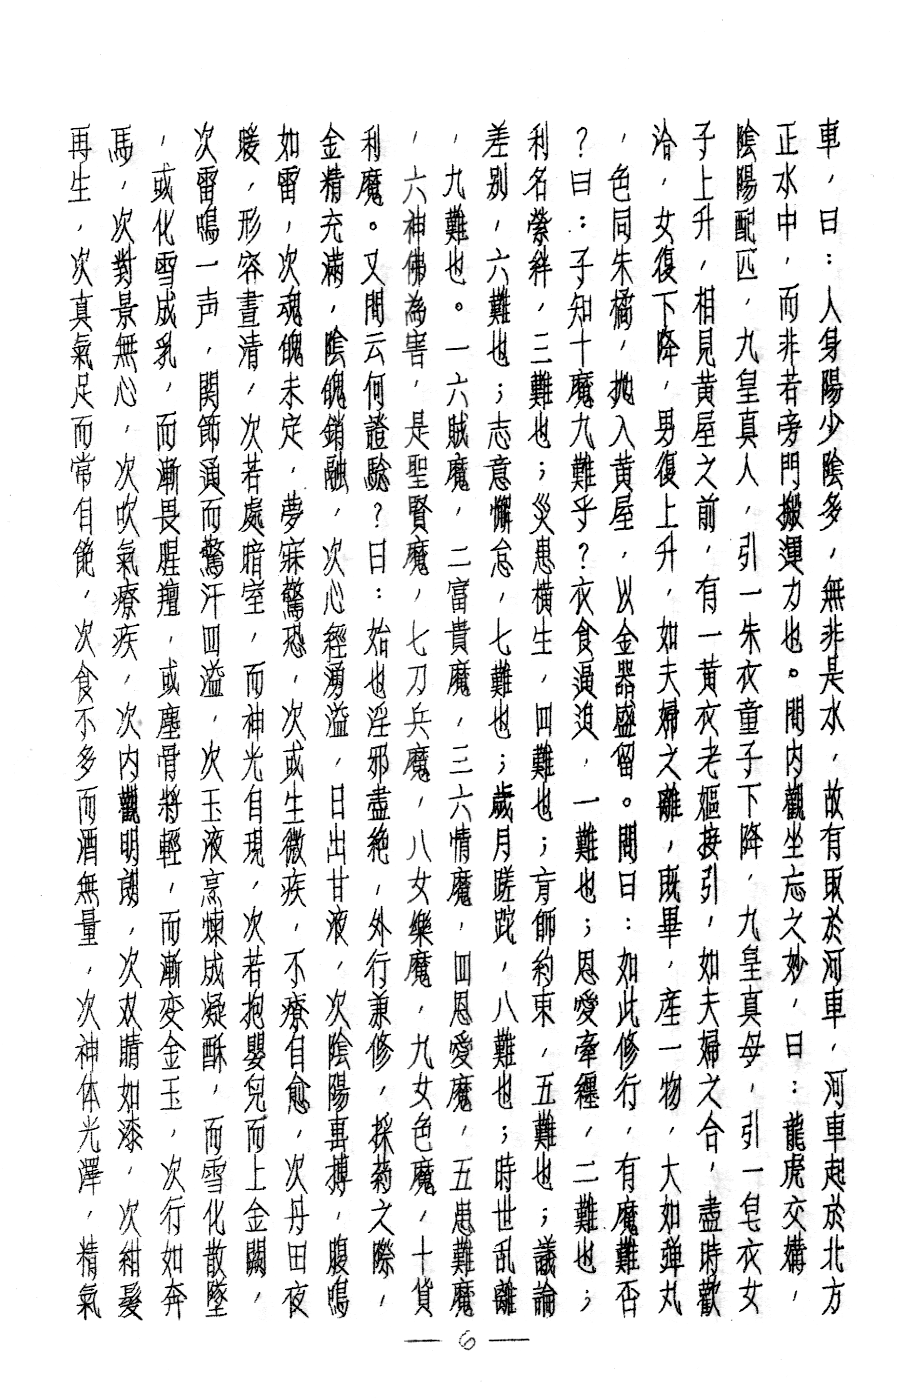 車，曰：人身陽少陰多，無非是水，故有取於河車，河車起於北方
正水中，而非若旁門搬運力也。問內觀坐忘之妙，曰：龍虎交媾，
陰陽配匹，九皇真人，引一朱衣童子下降，九皇真母，引一皂衣女
子上升，相見黃屋之前，有一黃衣老嫗接引，如夫婦之合，盡時歡
洽，女復下降，男復上升，如夫婦之離，既畢，產一物，大如弹丸
，色同朱橘，拋入黃屋，以金器盛留。問曰：如此修行，有魔難否
？曰：子知十魔九難乎？衣食逼迫，一難也；恩愛牽纏，二難也；
利名縈絆，三難也；災患横生，四難也；盲師約束，五難也；議論
差別，六難也；志意懈怠，七難也；歲月蹉跎，八難也；時世乱離
，九難也。一六賊魔，二富貴魔，三六情魔，四恩愛魔，五患難魔
，六神佛為害，是聖賢魔，七刀兵魔，八女樂魔，九女色魔，十貨
利魔。又問云何證驗？曰：始也淫邪盡絶，外行兼修，採葯之際，
金精充滿，陰魄銷融，次心經湧溢，日出甘液，次陰陽擊搏，腹鳴
如雷，次魂魄未定，夢寐驚恐，次或生微疾，不療自愈，次丹田夜
煖，形容晝清，次若處暗室，而神光自現，次若抱嬰兒而上金闕，
次雷鳴一声，関節通而驚汗四溢，次玉液烹煉成凝酥，而雪化散墜
，或化雪成乳，而漸畏腥羶，或塵骨將輕，而漸変金玉，次行如奔
馬，次對景無心，次吹氣療疾，次內觀明朗，次双睛如漆，次紺髮
再生，次真氣足而常自飽，次食不多而酒無量，次神体光澤，精氣
— 6 —